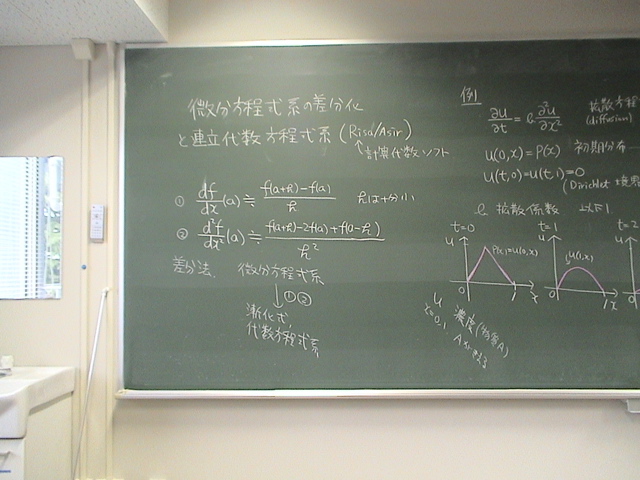 微分方程式系の差分化
と連立代数方程式系 (Risa/Asir)
計算代数ソフト
① df/dx (a) ≒ f(a+h)-f(a) / h hは十分小
② d²f/dx² (a) ≒ f(a+h)-2f(a)+f(a-h) / h²
差分法. 微分方程式系
↓①②
漸化式,
代数方程式系
例
∂u/∂t = ∂²u/∂x²
拡散方程
(diffusion)
u(0,x) = P(x) 初期分布
u(t,0)=u(t,1)=0
(Dirichlet 境界
拡散係数 以下1
t=0
u
P(x)=u(0,x)
0 1 x
t=1
u
u(1,x)
0 1 x
t=2
u
0
u 濃度(物質A)